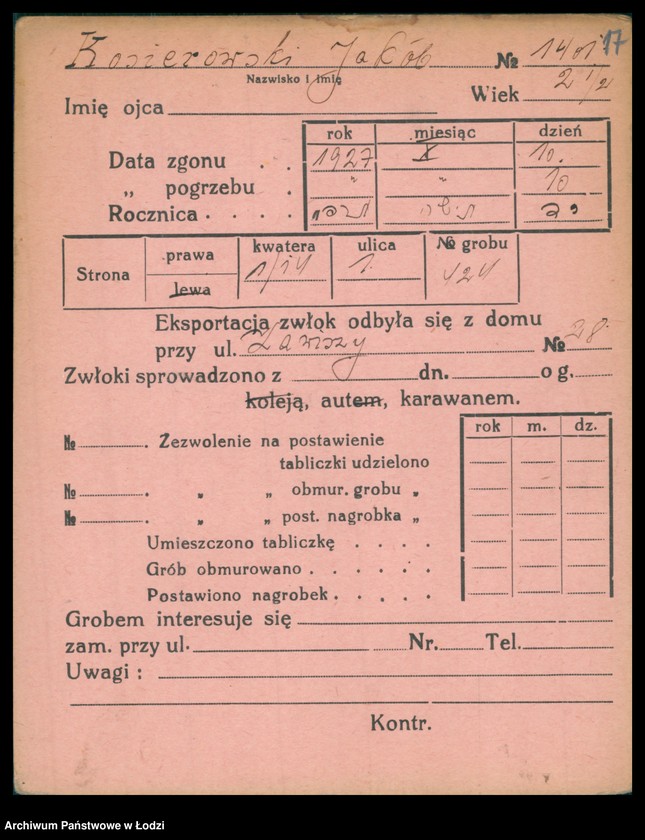 Kosierowski Jakób № 1401 17
Nazwisko i imię
Wiek 2 1/2
Imię ojca
rok miesiąc dzień
Data zgonu . . 1927 X 10.
„ pogrzebu . " " 10
Rocznica . . . . תרפח תשרי יד
Strona prawa lewa kwatera ulica № grobu
1/14 1. 424
Eksportacja zwłok odbyła się z domu
przy ul. Zawiszy № 28
Zwłoki sprowadzono z dn. o g.
koleją, autem, karawanem.
rok m. dz.
№ . Zezwolenie na postawienie
tabliczki udzielono
№ . „ „ obmur. grobu „
№ . „ „ post. nagrobka „
Umieszczono tabliczkę . . . .
Grób obmurowano . . . . . .
Postawiono nagrobek . . . . .
Grobem interesuje się
zam. przy ul. Nr. Tel.
Uwagi :
Kontr.
Archiwum Państwowe w Łodzi